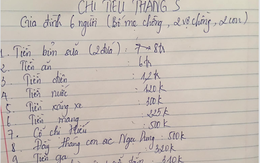 CHI TIÊU THÁNG 5
Gia đình 6 người (Bố mẹ chồng, 2 vợ chồng, 2 con)
1. Tiền bỉm sữa (2 đứa): 7 → 8tr
2. Tiền ăn : 6tr
3. Tiền điện : 1,2tr
4. Tiền nước : 120k
5. Tiền xăng xe : 300k
6. Tiền mạng : 225k
7. Cỗ chị Hiếu : 500k
8. Đầy tháng con ac Nga Dũng : 500k
Tiền ga : 320k